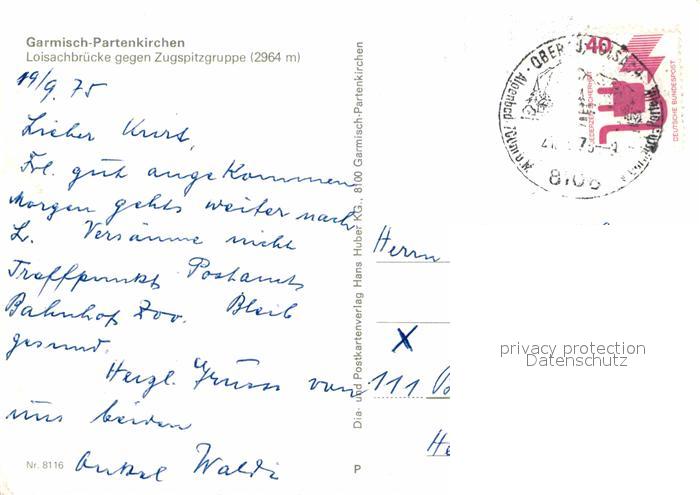 Garmisch-Partenkirchen
Loisachbrücke gegen Zugspitzgruppe (2964 m)
19/9. 75
Lieber Kurt,
Frl. gut angekommen
Morgen gehts weiter nach
L. Versäume nicht
Treffpunkt Postamt
Bahnhof Zoo. Bleib
gesund.
Herzl. Grüsse von
uns beiden
Onkel Waldi
Nr. 8116
Dia- und Postkartenverlag Hans Huber KG., 8100 Garmisch-Partenkirchen
P
Herrn
X
111
40
JEDERZEIT SICHERHEIT
DEUTSCHE BUNDESPOST
8106
privacy protection
Datenschutz